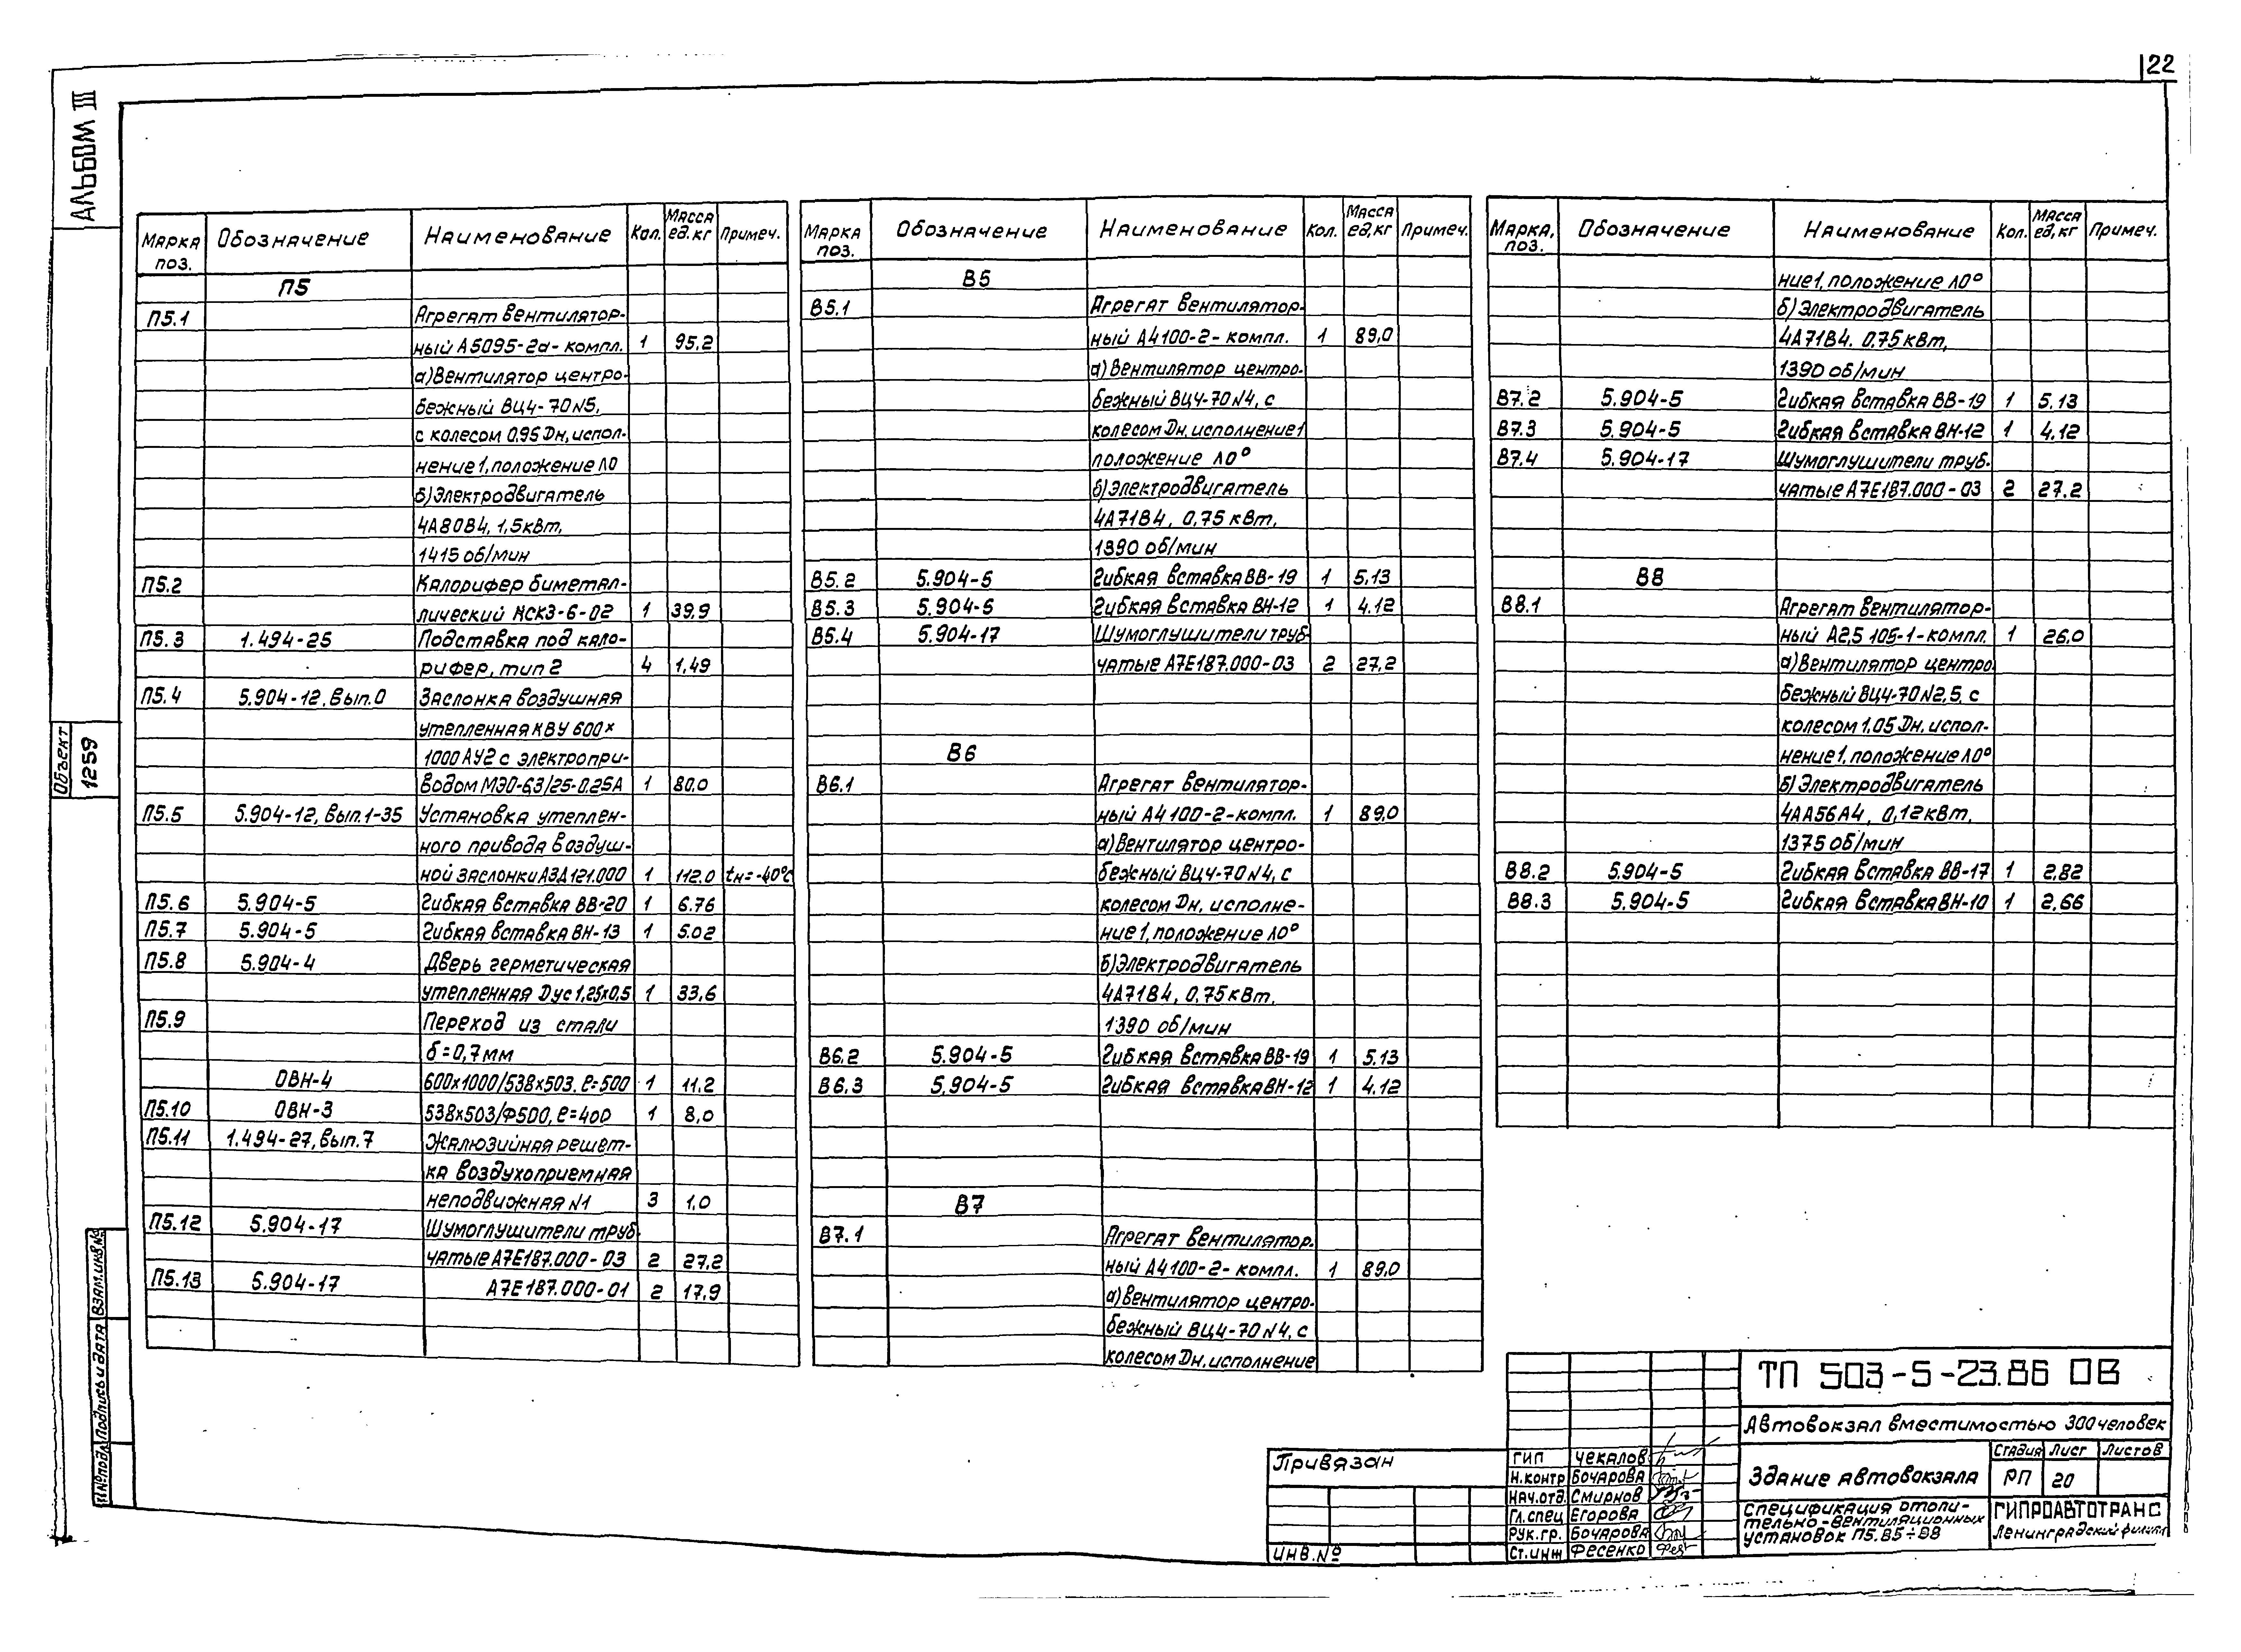 22
АЛЬБОМ III
Объект 1259
Взам.инв.№
Подпись и дата
Марка поз. Обозначение Наименование Кол. Масса ед.кг Примеч.
П5
П5.1 Агрегат вентилятор-
ный А5095-2а-компл. 1 95,2
а)Вентилятор центро-
бежный ВЦ4-70N5,
с колесом 0,95 Dн, испол-
нение 1, положение Л0
б)Электродвигатель
4А80В4, 1,5кВт,
1415 об/мин
П5.2 Калорифер биметал-
лический КСК3-6-02 1 39,9
П5.3 1.494-25 Подставка под кало-
рифер, тип 2 4 1,49
П5.4 5.904-12, вып.0 Заслонка воздушная
утепленная КВУ 600х
1000 АУ2 с электропри-
водом МЭО-6,3/25-0.25А 1 80,0
П5.5 5.904-12, вып.1-35 Установка утеплен-
ного привода воздуш-
ной заслонки АЗД 121.000 1 112.0 tн=-40°С
П5.6 5.904-5 Гибкая вставка ВВ-20 1 6.76
П5.7 5.904-5 Гибкая вставка ВН-13 1 5.02
П5.8 5.904-4 Дверь герметическая
утепленная Дус 1,25х0,5 1 33,6
П5.9 Переход из стали
δ=0,7мм
ОВН-4 600х1000/538х503, ℓ=500 1 11.2
П5.10 ОВН-3 538х503/Ф500, ℓ=400 1 8,0
П5.11 1.494-27, вып.7 Жалюзийная решет-
ка воздухоприемная
неподвижная N1 3 1,0
П5.12 5.904-17 Шумоглушители труб-
чатые А7Е187.000-03 2 27,2
П5.13 5.904-17 А7Е187.000-01 2 17,9
Марка поз. Обозначение Наименование Кол. Масса ед,кг Примеч.
В5
В5.1 Агрегат вентилятор-
ный А4100-2-компл. 1 89,0
а)Вентилятор центро-
бежный ВЦ4-70N4, с
колесом Dн, исполнение 1
положение Л0°
б)Электродвигатель
4А71В4, 0,75 кВт,
1390 об/мин
В5.2 5.904-5 Гибкая вставка ВВ-19 1 5,13
В5.3 5.904-5 Гибкая вставка ВН-12 1 4.12
В5.4 5.904-17 Шумоглушители труб-
чатые А7Е187.000-03 2 27,2
В6
В6.1 Агрегат вентилятор-
ный А4100-2-компл. 1 89,0
а)Вентилятор центро-
бежный ВЦ4-70N4, с
колесом Dн, исполне-
ние 1, положение Л0°
б)Электродвигатель
4А71В4, 0,75кВт,
1390 об/мин
В6.2 5.904-5 Гибкая вставка ВВ-19 1 5,13
В6.3 5,904-5 Гибкая вставка ВН-12 1 4.12
В7
В7.1 Агрегат вентилятор-
ный А4100-2-компл. 1 89,0
а)Вентилятор центро-
бежный ВЦ4-70N4, с
колесом Dн, исполнение
Марка, поз. Обозначение Наименование Кол. Масса ед,кг Примеч.
ние 1, положение Л0°
б)Электродвигатель
4А71В4. 0,75 кВт,
1390 об/мин
В7.2 5.904-5 Гибкая вставка ВВ-19 1 5,13
В7.3 5.904-5 Гибкая вставка ВН-12 1 4,12
В7.4 5.904-17 Шумоглушители труб-
чатые А7Е187.000-03 2 27.2
В8
В8.1 Агрегат вентилятор-
ный А2,5 105-1-компл. 1 26,0
а)Вентилятор центро
бежный ВЦ4-70N2,5, с
колесом 1.05 Dн, испол-
нение 1, положение Л0°
б)Электродвигатель
4АА56А4, 0,12кВт,
1375 об/мин
В8.2 5.904-5 Гибкая вставка ВВ-17 1 2,82
В8.3 5.904-5 Гибкая вставка ВН-10 1 2,66
Привязан
инв.№
ГИП Чекалов
Н.контр Бочарова
Нач.отд. Смирнов
Гл.спец Егорова
Рук.гр. Бочарова
Ст.инж Фесенко
ТП 503-5-23.86 ОВ
Автовокзал вместимостью 300 человек
Здание автовокзала
Стадия Лист Листов
РП 20
Спецификация отопи-
тельно-вентиляционных
установок П5,В5÷В8
ГИПРОАВТОТРАНС
Ленинградский филиал